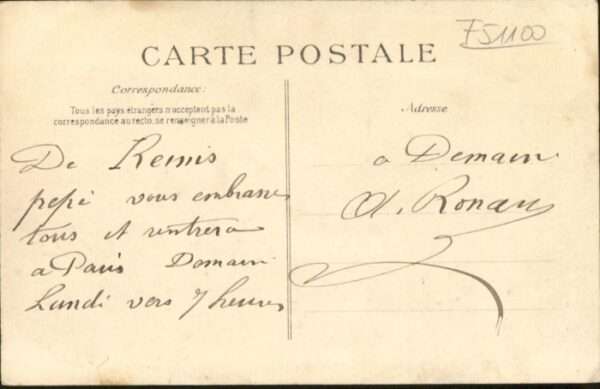 F51100
CARTE POSTALE
Correspondance:
Tous les pays étrangers n'acceptent pas la
correspondance au recto, se renseigner à la Poste
Adresse
De Reims
pepé vous embrasse
tous et rentrera
a Paris Demain
Lundi vers 7 heures
a Demain
A. Ronau